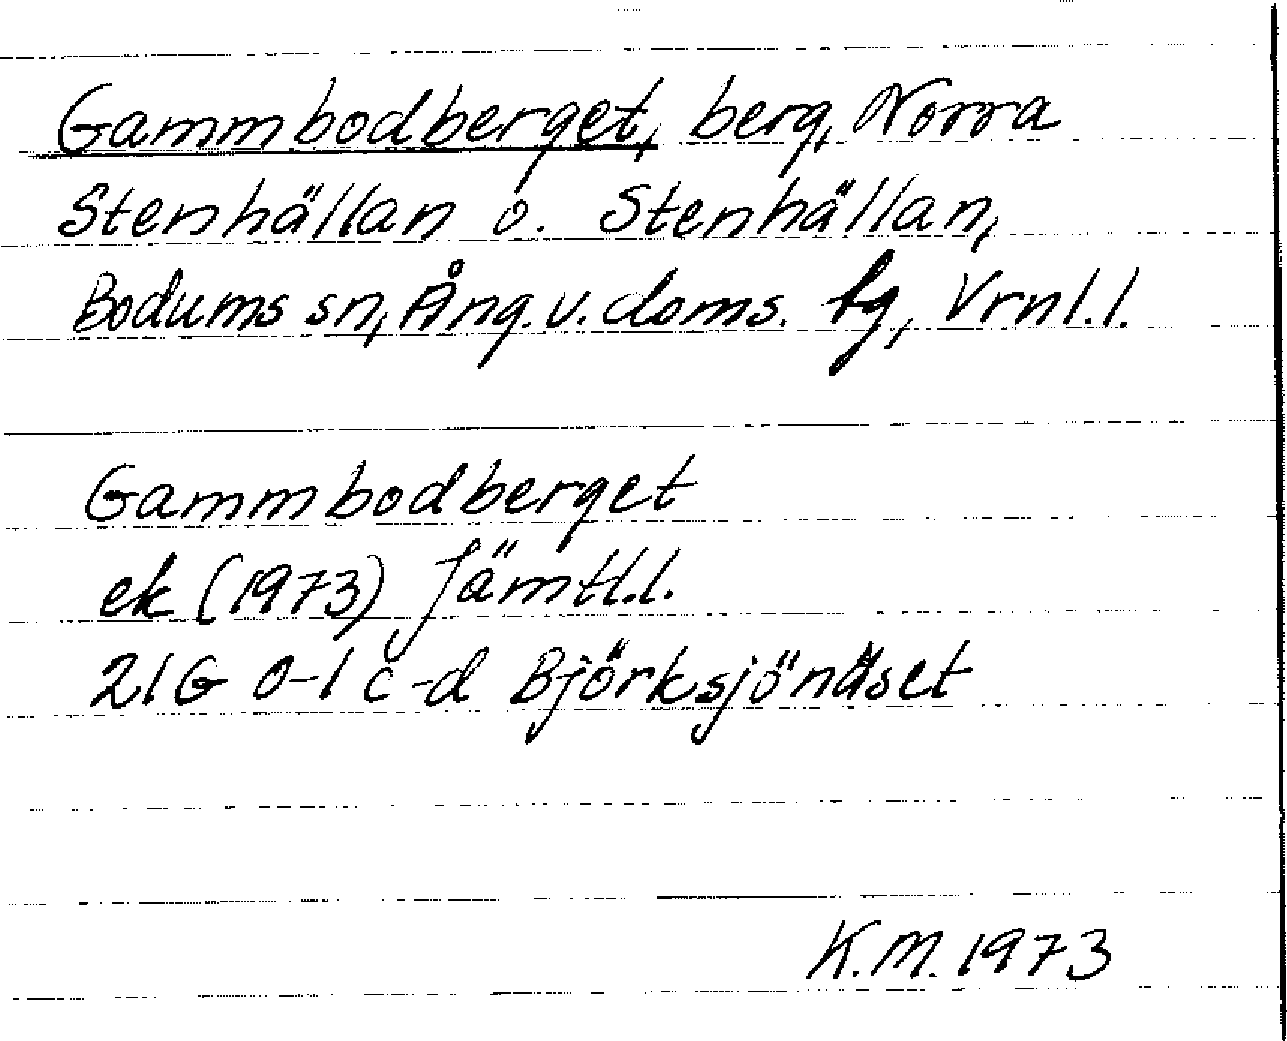 Gammbodberget, berg, Norra
Stenhällan o. Stenhällan,
Bodums sn, Ång. v. doms. fg, Vrnl.l.
Gammbodberget
ek (1973) Jämtl.l.
21G 0-1 c-d Björksjönäset
K.M. 1973